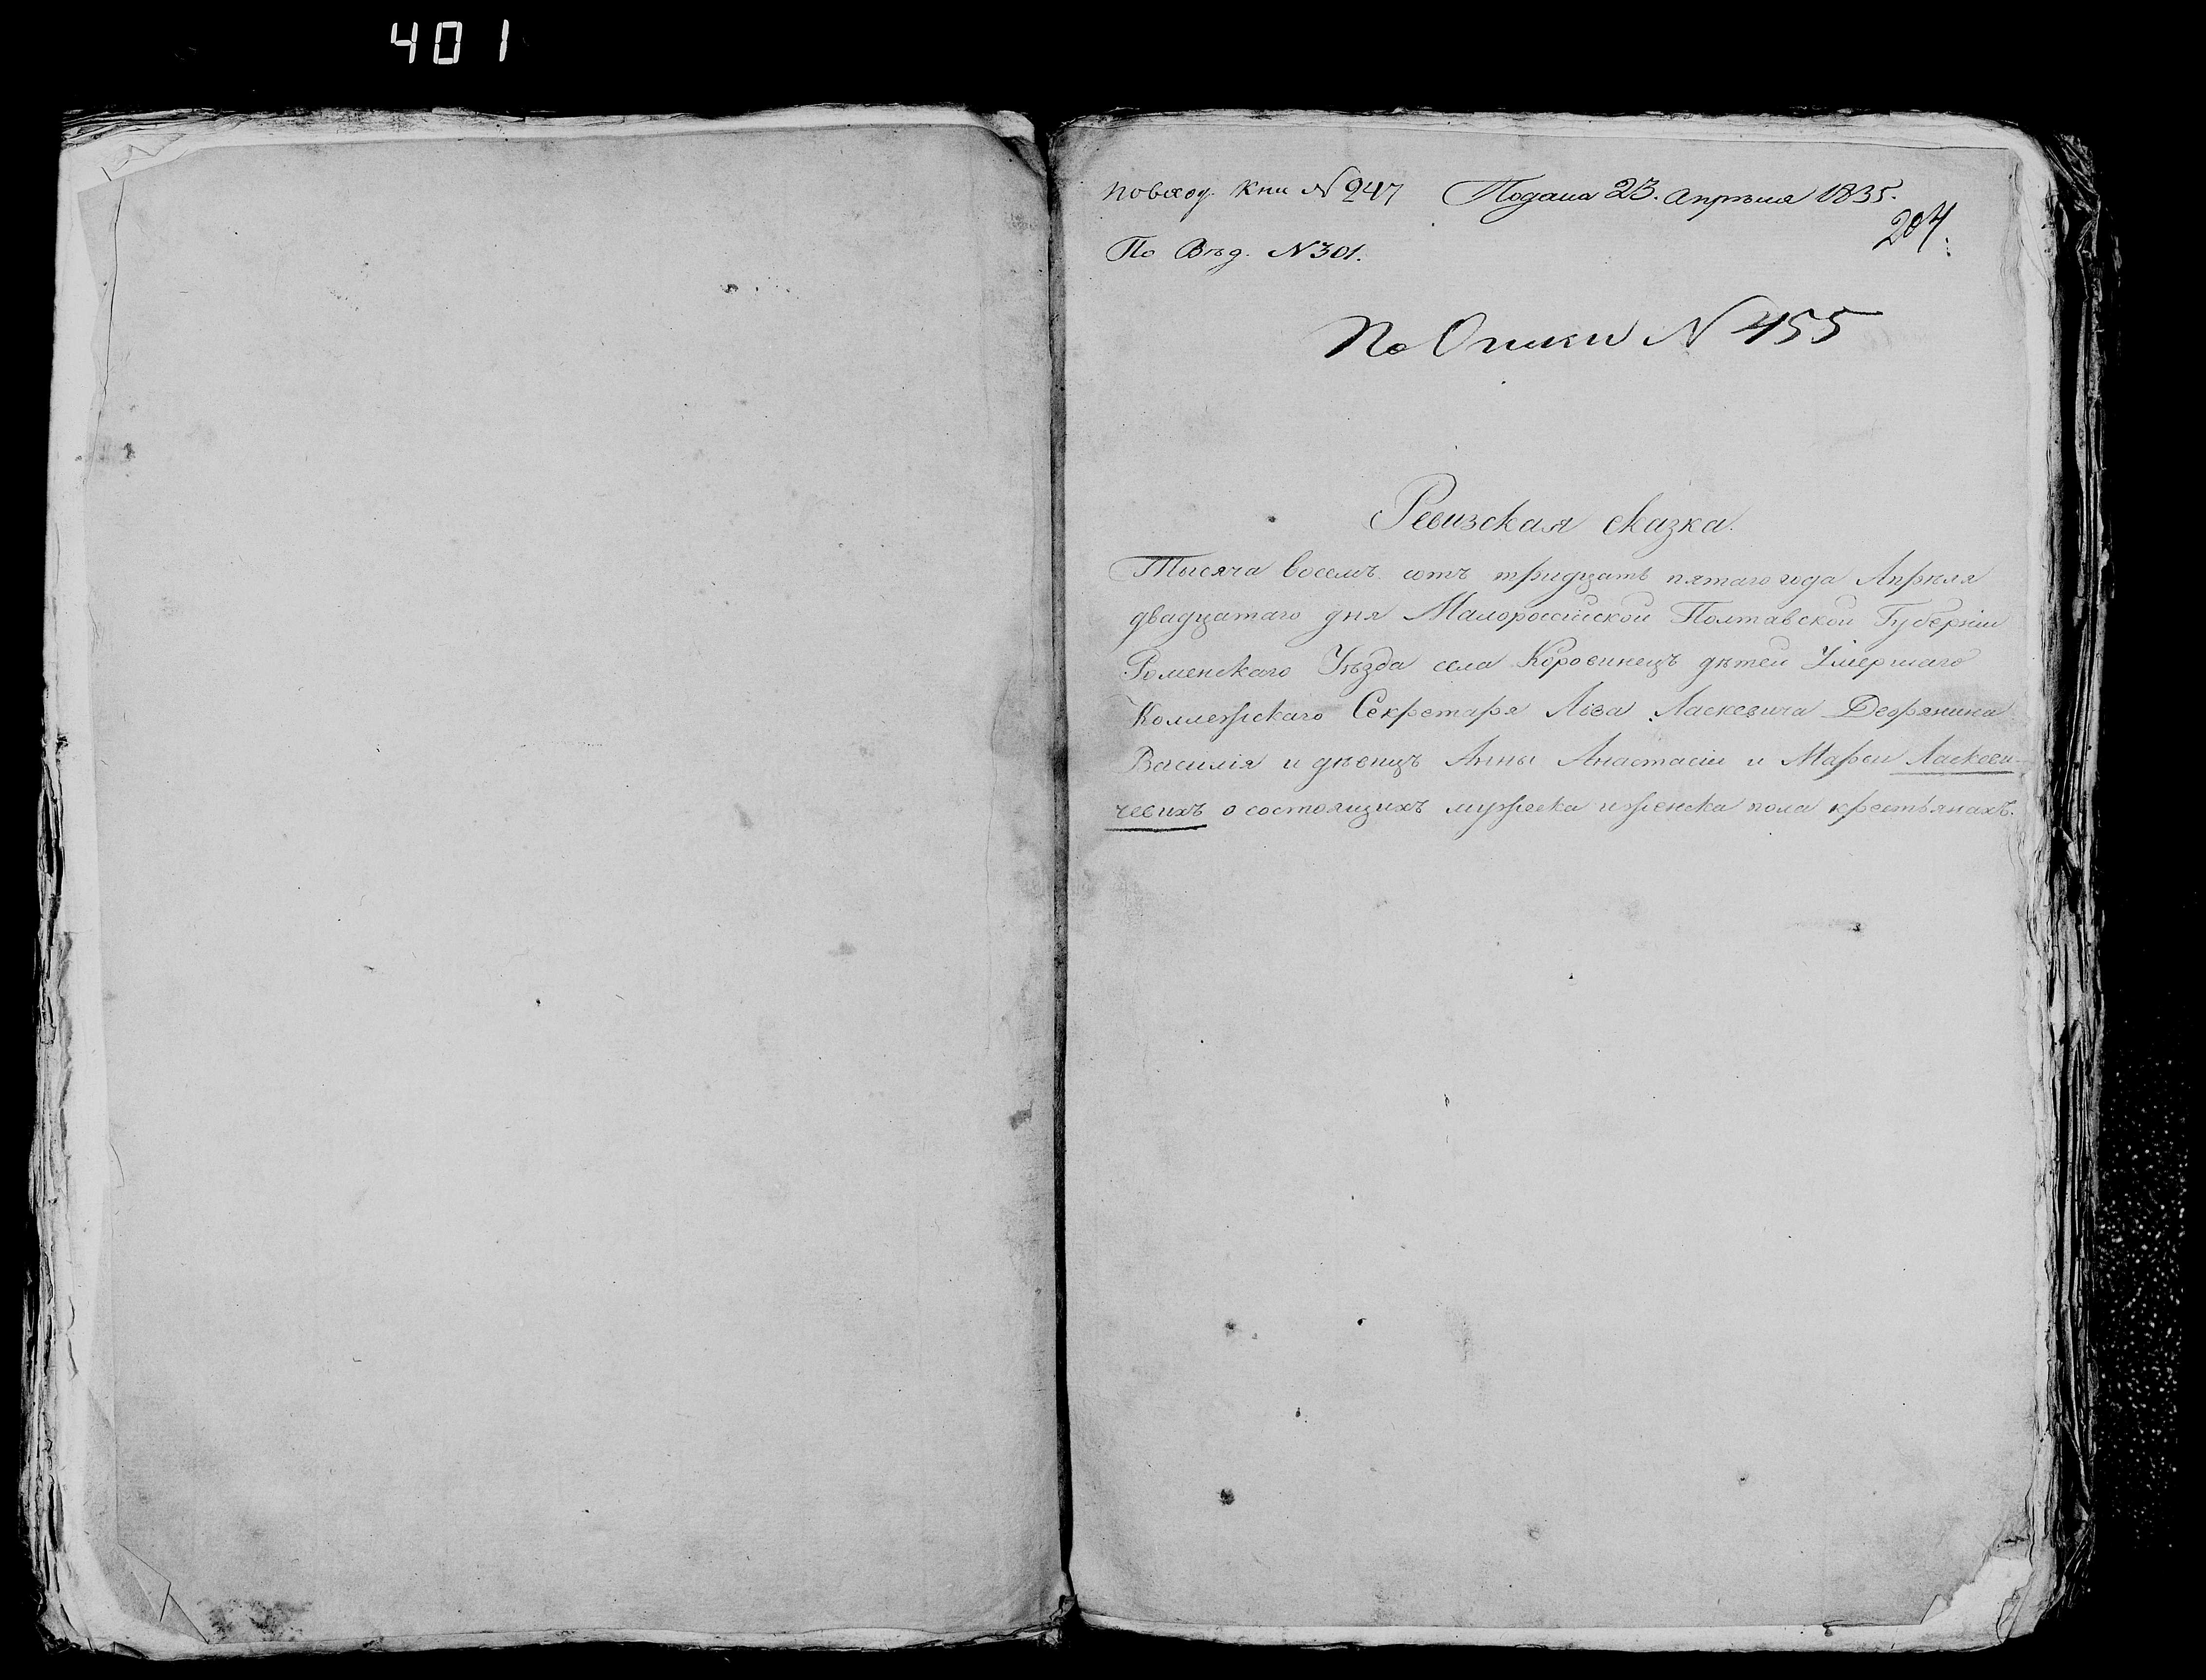 401
По вход. Кни N 247 Подана 23. Апрѣля 1835.
204.
По Вѣд. N 301.
По Описи N 455
Ревизская сказка.
Тысяча восемъ сотъ тридцать пятаго года Апрѣля
двадцатаго дня Малороссійской Полтавской Губерніи
Роменскаго Уѣзда села Коровинецъ дѣтей Умершаго
Коллежскаго Секретаря Ласкевича Дворянина
Василія и дѣвицъ Анны Анастасіи и Марфы Ласкеви-
чевихъ о состоящихъ мужеска и женска пола крестьянахъ.